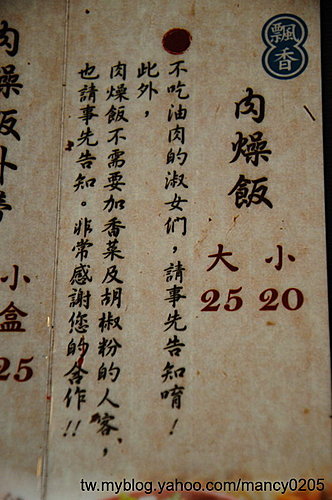 飄香
肉燥飯
大 小
25 20
不吃油肉的淑女們，請事先告知唷！
此外，
肉燥飯不需要加香菜及胡椒粉的人客，
也請事先告知。非常感謝您的合作!!
肉燥飯
小盒
25
tw.myblog.yahoo.com/mancy0205